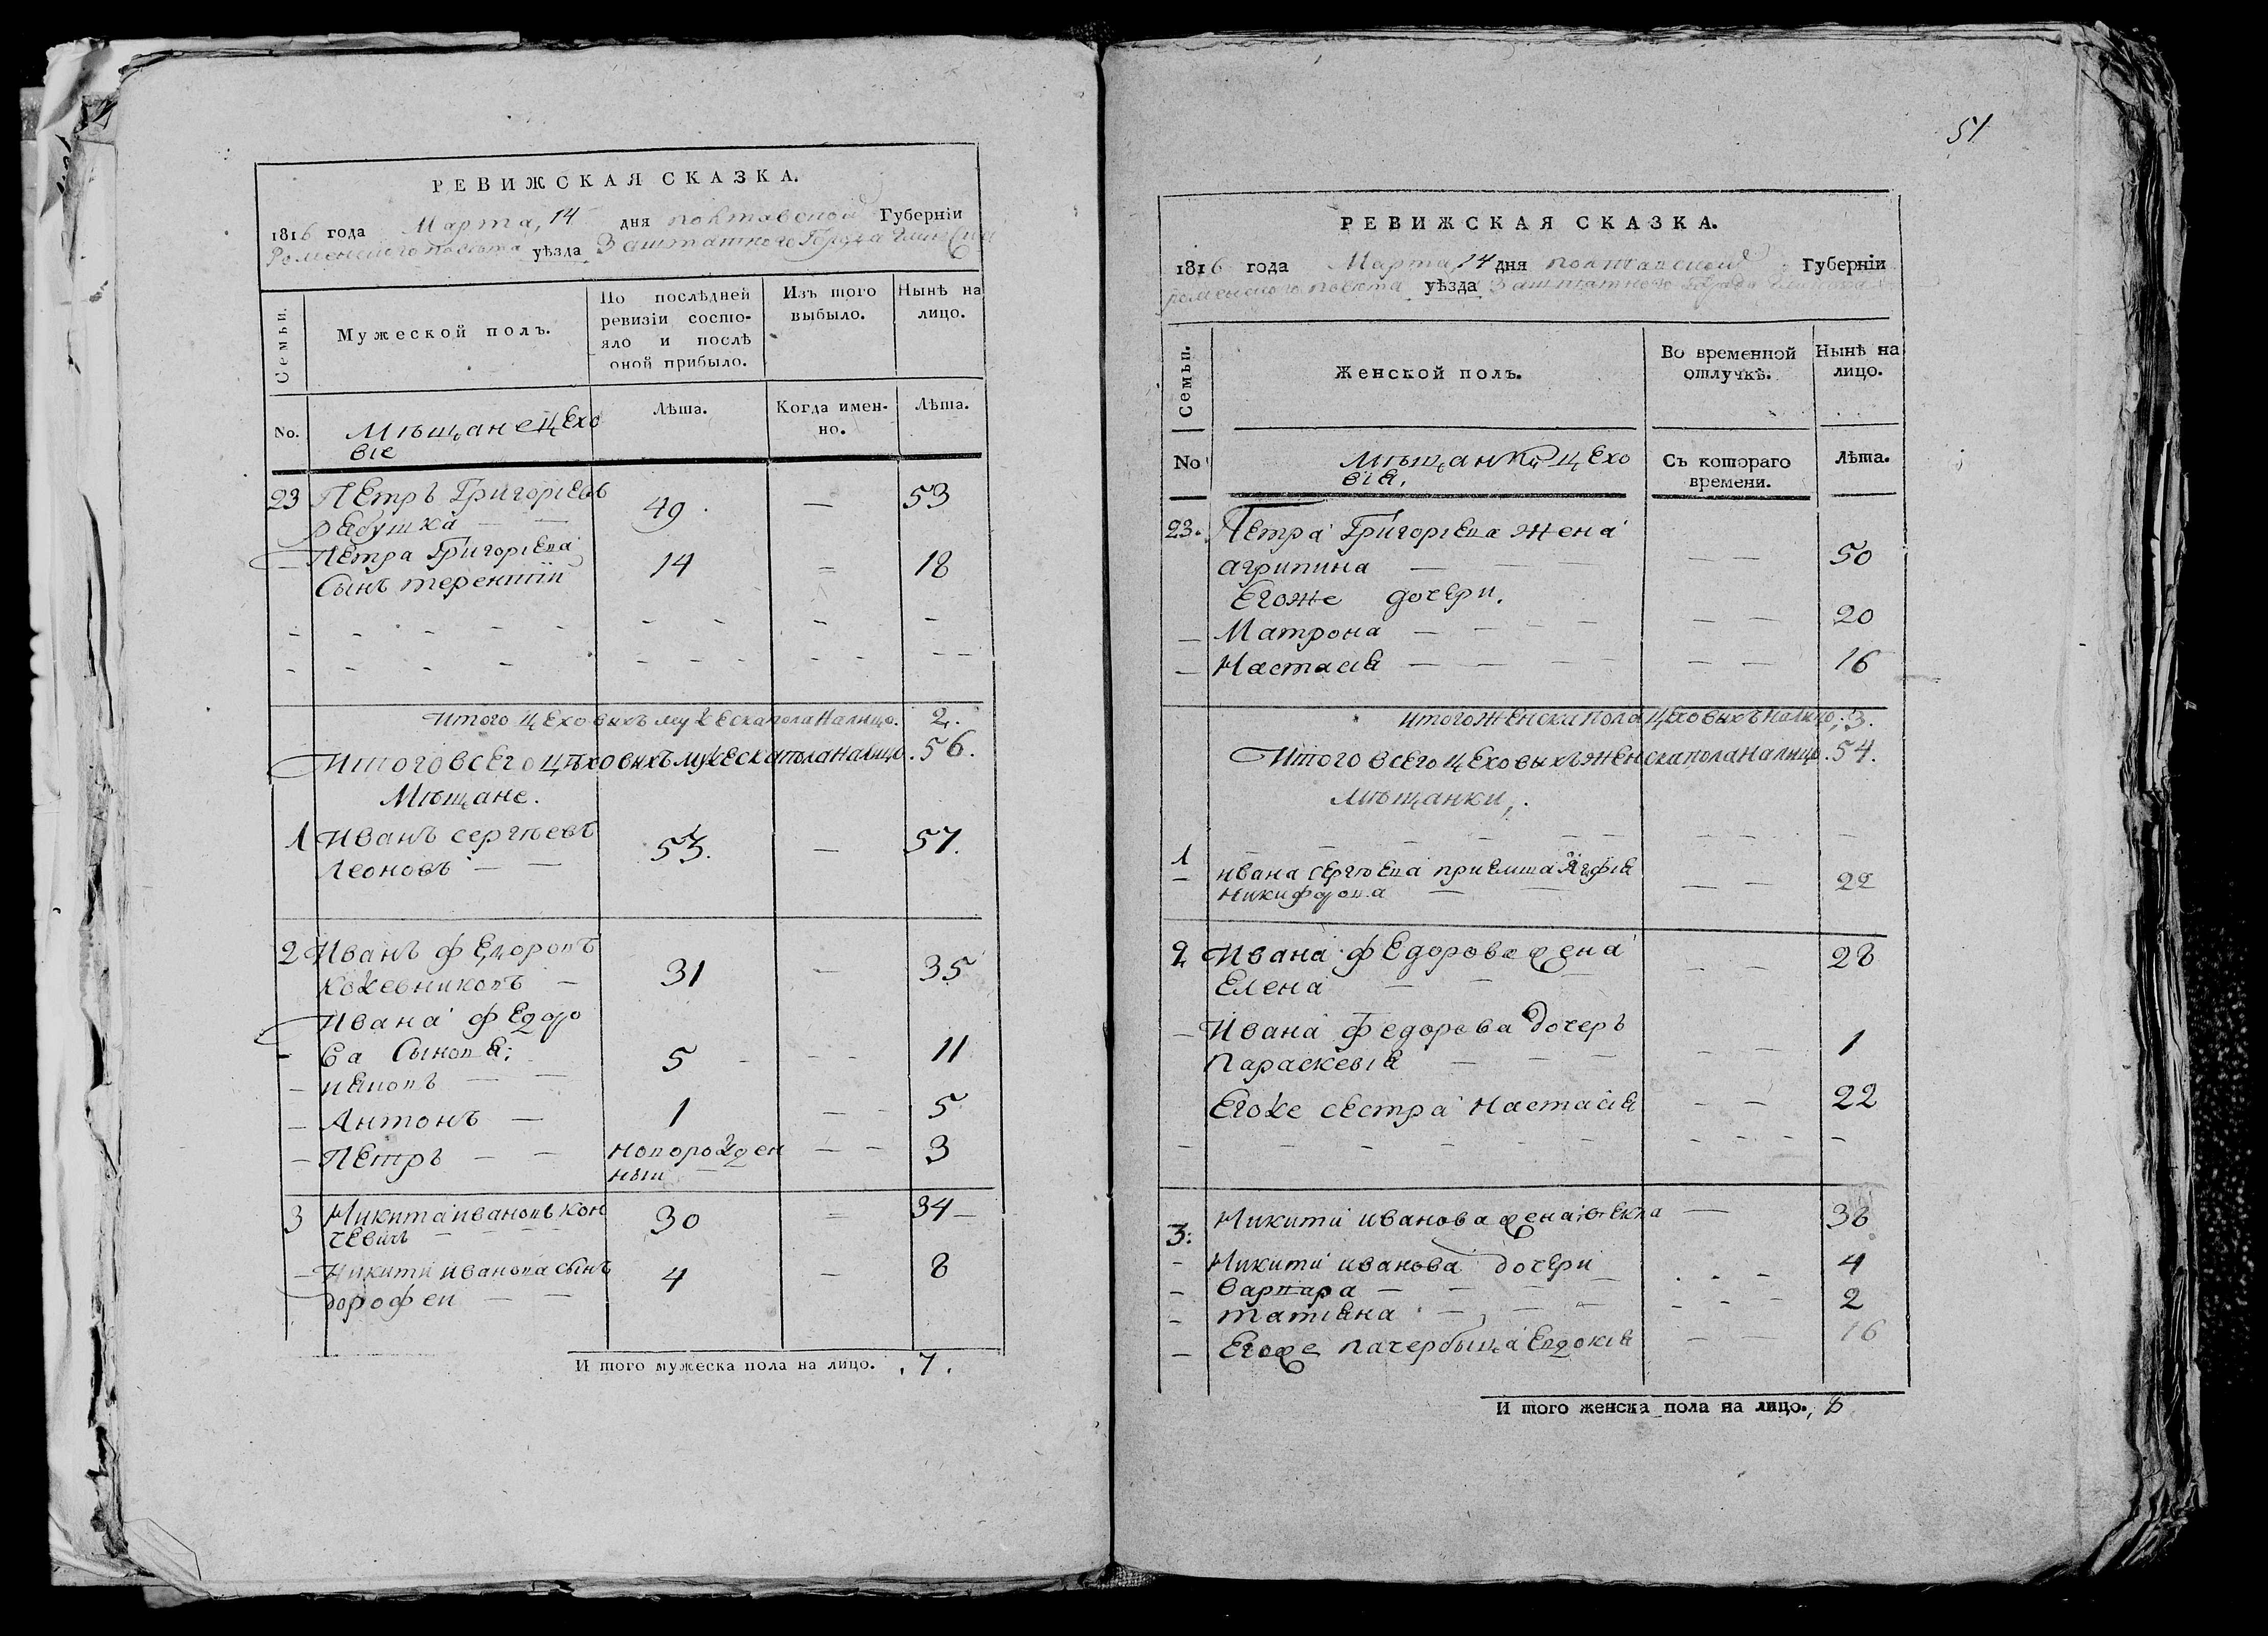 РЕВИЖСКАЯ СКАЗКА.
1816 года Марта, 14 дня полтавской Губерніи
Роменского повѣта уѣзда Заштатного Города Глинска
Семьи.
Мужеской полъ.
По послѣдней ревизіи состояло и послѣ оной прибыло.
Изъ того выбыло.
Нынѣ на лицо.
No.
Мѣщане цЕхо
віе
Лѣта.
Когда именно.
Лѣта.
23 ПЕтръ Григоріевъ 49 — 53
рябушка — —
— ПЕтра Григоріева 14 = 18
Сынъ терентій
Итого цЕховыхъ мужеска пола На лицо. 2.
Итого всЕго цѣховыхъ мужЕска пола На лицо. 56.
Мѣщане.
1 Иванъ сергѣевъ 53. — 57.
Леоновъ —
2 Иванъ фЕдоровъ 31 — 35
кожевниковъ —
Ивана фЕдоро
ва Сыновя; 5 - 11
— — —
— Антонъ — 1 — 5
— ПЕтръ — — новорожден — 3
ный —
3 Никита ивановъ кон 30 = 34 —
чЕвичъ —
— Никити иванова сынъ 4 — 8
дорофеи — —
И того мужеска пола на лицо. . 7 .
51
РЕВИЖСКАЯ СКАЗКА.
1816 года Марта, 14 дня полтавской Губерніи
роменского повѣта уѣзда Заштатного города глинска
Семьи.
Женской полъ.
Во временной отлучкѣ.
Нынѣ на лицо.
No
Мѣщанки цЕхо
вія,
Съ котораго времени.
Лѣта.
23. ПЕтра Григоріева жена
агрипина — — — 50
Егоже дочЕри.
— Матрона — — — 20
— Настасія — — — 16
итого жЕнска пола цЕховыхъ на лицо; 3.
Итого всЕго цЕховыхъ жЕнска пола На лицо. 54.
Мѣщанки,.
1 ивана сЕргѣЕва приЕмша Агафія
никифорова — — 22
2 Ивана фЕдорова жена 28
Елена — — —
— Ивана федорова дочеръ 1
Параскевія — — —
Егоже сЕстра Настасія — — 22
3: Никити иванова жена ѳекла — 38
- Никити иванова дочЕри 4
- варвара — — —
- татіяна — — — 2
— Егоже пачербица Евдокія — — 16
И того женска пола на лицо., 8